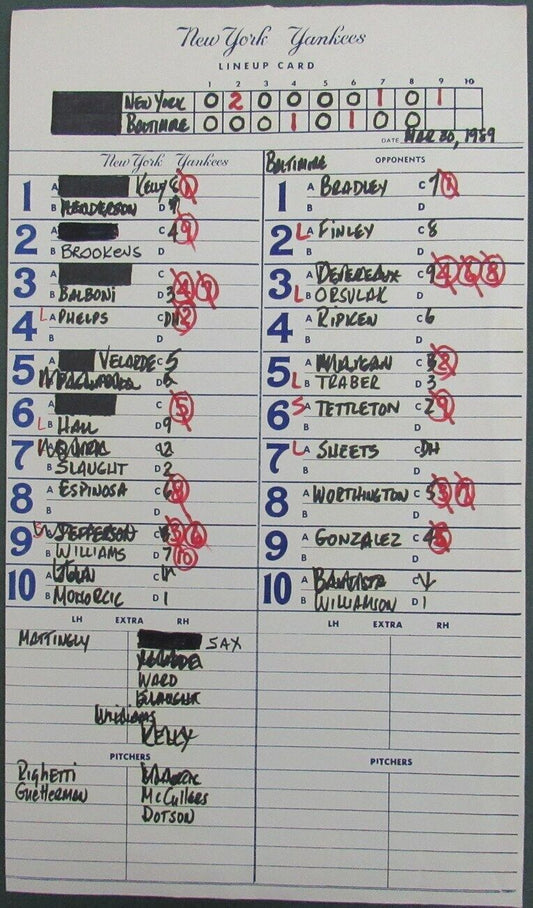 New York Yankees
LINEUP CARD
1 2 3 4 5 6 7 8 9 10
NEW YORK 0 2 0 0 0 0 1 0 1
BALTIMORE 0 0 0 1 0 1 0 0
DATE MAR 30, 1989
New York Yankees
BALTIMORE OPPONENTS
1 A KELLY C 8
B HENDERSON D 7
2 A C 4
B BROOKENS D
3 A C
B BALBONI D 3
4 L A PHELPS C DH
B D
5 A VELARDE C 5
B D 5
6 A C
L B HALL D 9
7 A QUIRK C 2
B SLAUGHT D 2
8 A ESPINOSA C 6
B D
9 A JEFFERSON C 8
B WILLIAMS D 7
10 A JOHN C
B MOHORCIC D 1
1 A BRADLEY C 7
B D
2 L A FINLEY C 8
B D
3 A DEVEREAUX C 9
L B ORSULAK D
4 A RIPKEN C 6
B D
5 A MILLIGAN C 3
L B TRABER D 3
6 S A TETTLETON C 2
B D
7 L A SHEETS C DH
B D
8 A WORTHINGTON C 5
B D
9 A GONZALEZ C 4
B D
10 A BAUTISTA C
B WILLIAMSON D 1
LH EXTRA RH
MATTINGLY SAX
VELARDE
WARD
SLAUGHT
WILLIAMS
KELLY
PITCHERS
RIGHETTI
GUETTERMAN McCULLERS
DOTSON
LH EXTRA RH
PITCHERS